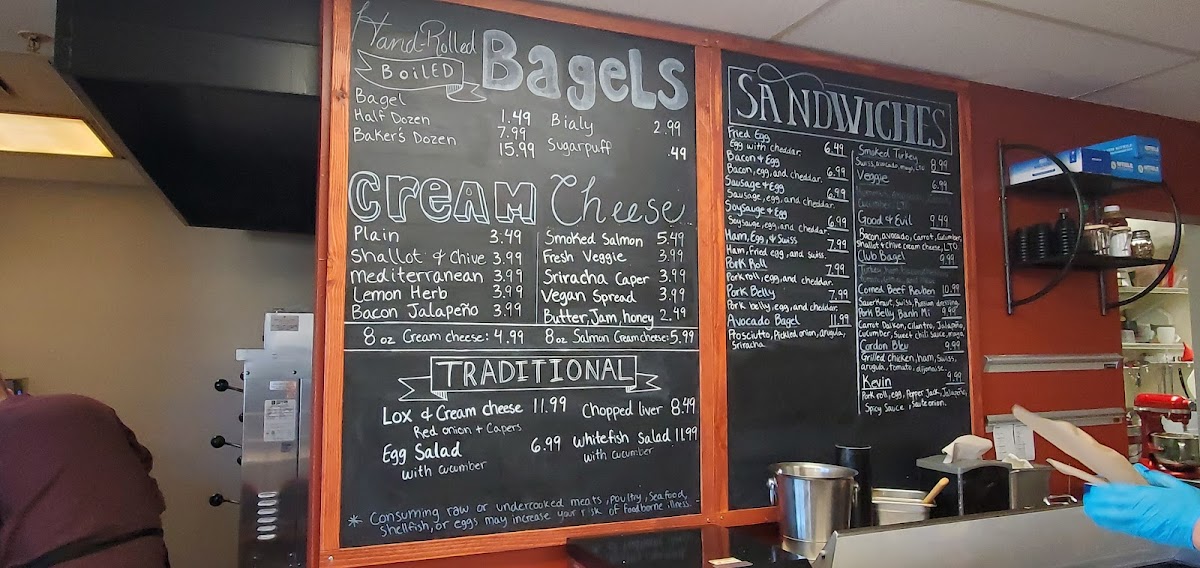 Hand-Rolled
BOiLED
BageLs
Bagel 1.49
Half Dozen 7.99
Baker's Dozen 15.99
Bialy 2.99
Sugarpuff .49
Cream Cheese
Plain 3.49
Shallot & Chive 3.99
mediterranean 3.99
Lemon Herb 3.99
Bacon Jalapeño 3.99
Smoked Salmon 5.49
Fresh Veggie 3.99
Sriracha Caper 3.99
Vegan Spread 3.99
Butter, Jam, honey 2.49
8 oz Cream cheese: 4.99
8 oz Salmon Cream cheese: 5.99
TRADITIONAL
Lox & Cream cheese 11.99
Red onion + Capers
Egg Salad 6.99
with cucumber
Chopped liver 8.49
Whitefish Salad 11.99
with cucumber
* Consuming raw or undercooked meats, poultry, seafood,
shellfish, or eggs may increase your risk of foodborne illness.
SANDWICHES
Fried Egg 6.49
Egg with cheddar.
Bacon & Egg 6.99
Bacon, egg, and cheddar.
Sausage & Egg 6.99
Sausage, egg, and cheddar.
Soysauge & Egg 6.99
Soysauge, egg, and cheddar.
Ham, Egg, & Swiss 7.99
Ham, fried egg, and swiss.
Pork Roll 7.99
Pork roll, egg, and cheddar.
Pork Belly 7.99
Pork belly, egg, and cheddar.
Avocado Bagel 11.99
Prosciutto, Pickled onion, arugula,
Sriracha.
Smoked Turkey 8.99
Swiss, avocado, mayo, LTO
Veggie 6.99
Cucumber, LTO
Good & Evil 9.49
Bacon, avocado, Carrot, Cucumber,
shallot & chive cream cheese, LTO
Club Bagel 9.99
Corned Beef Reuben 10.99
Sauerkraut, Swiss, Russian dressing
Pork Belly Banh Mi 9.99
Carrot Daikon, cilantro, Jalapeño,
Cucumber, Sweet chili sauce, mayo
Cordon Bleu 9.99
Grilled chicken, ham, Swiss,
arugula, tomato, dijonaise.
Kevin 9.99
Pork roll, egg, Pepper Jack, Jalapeño,
Spicy Sauce, Saute onion.